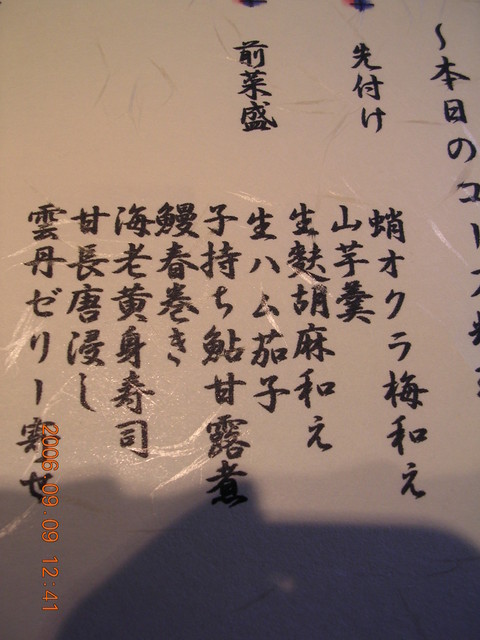 〜本日のコース料理
先付け
蛸オクラ梅和え
山芋羹
前菜盛
生麩胡麻和え
生ハム茄子
子持ち鮎甘露煮
鰻春巻き
海老黄身寿司
甘長唐浸し
雲丹ゼリー寄せ
2006.09.09 12:41